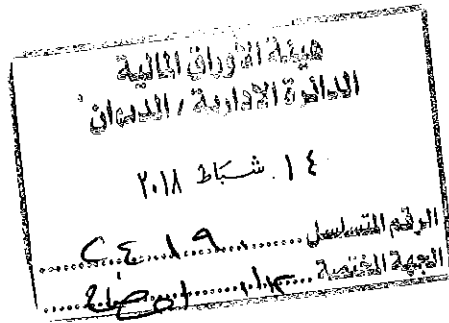 هيئة الأوراق المالية
الدائرة الإدارية / الديوان
١٤ شباط ٢٠١٨
الرقم المتسلسل
الجهة المختصة